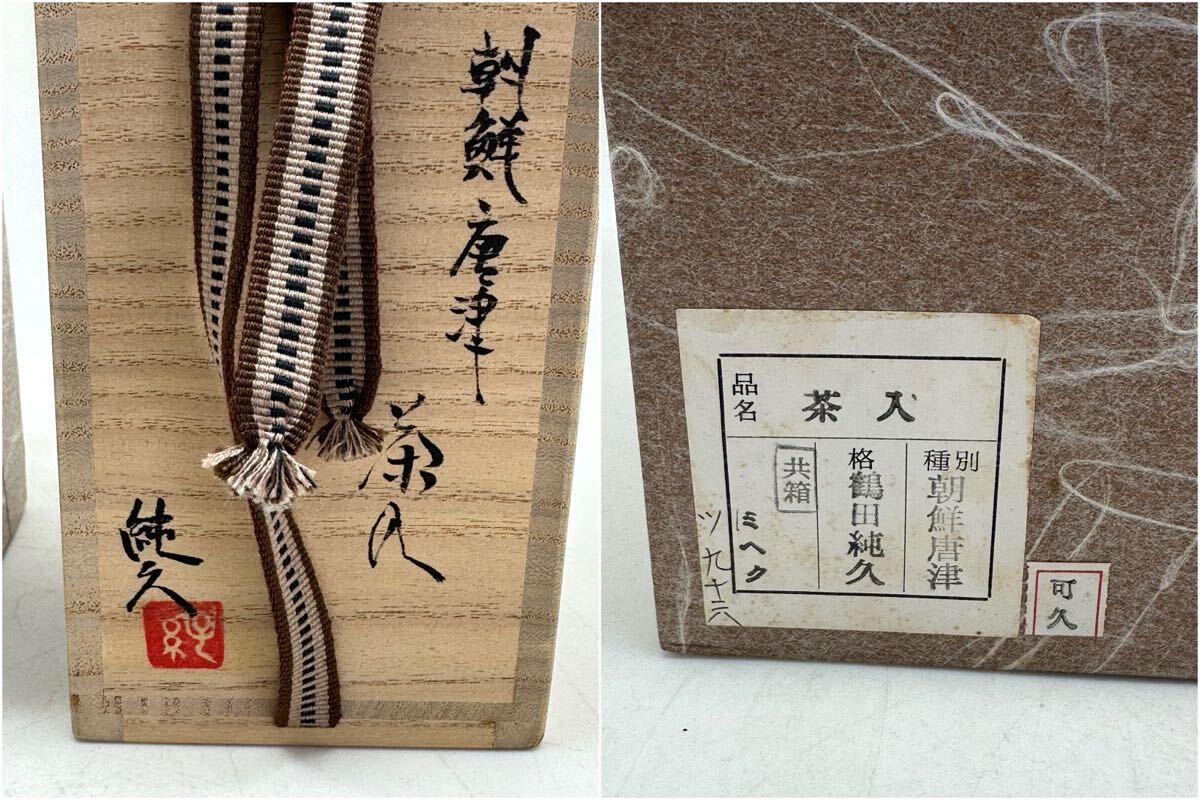 朝鮮唐津
茶入
純久
純
品名
茶入
種別
朝鮮唐津
格
鶴田純久
共箱
ミヘク
ツ九十六
可久